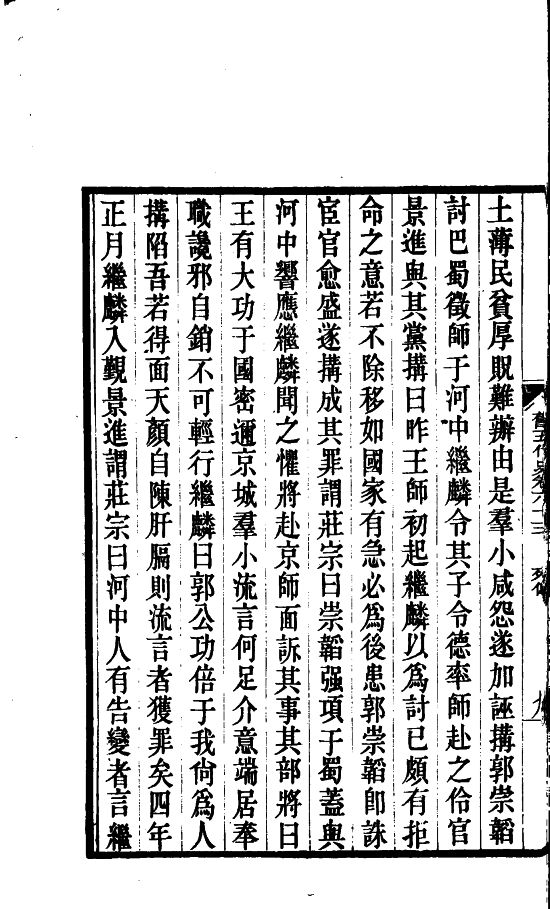 土薄民貧厚貺難辦由是羣小咸怨遂加誣搆郭崇韜
討巴蜀徵師于河中繼麟令其子令德率師赴之伶官
景進與其黨搆曰昨王師初起繼麟以爲討己頗有拒
命之意若不除移如國家有急必爲後患郭崇韜卽誅
宦官愈盛遂搆成其罪謂莊宗曰崇韜强項于蜀蓋與
河中響應繼麟聞之懼將赴京師面訴其事其部將曰
王有大功于國密邇京城羣小流言何足介意端居奉
職讒邪自銷不可輕行繼麟曰郭公功倍于我尙爲人
搆陷吾若得面天顏自陳肝膈則流言者獲罪矣四年
正月繼麟入覲景進謂莊宗曰河中人有告變者言繼